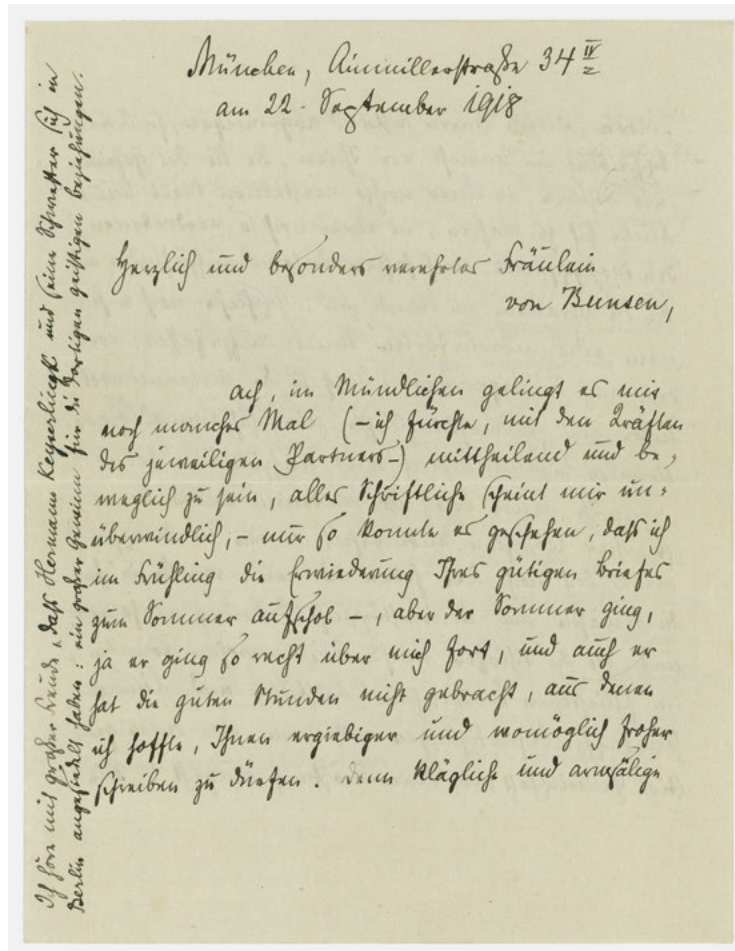 München, Ainmillerstraße 34 IV
am 22. September 1918
Herzlich und besonders verehrtes Fräulein
von Bunsen,
ach, im Mündlichen gelingt es mir
noch manches Mal (– ich fürchte, mit den Kräften
des jeweiligen Partners –) mittheilend und be-
weglich zu sein, alles Schriftliche scheint mir un-
überwindlich, – nur so konnte es geschehen, daß ich
im Frühling die Erwiederung Ihres gütigen Briefes
zum Sommer aufschob –, aber der Sommer ging,
ja er ging so recht über mich fort, und auch er
hat die guten Stunden nicht gebracht, aus denen
ich hoffte, Ihnen ergiebiger und womöglich froher
schreiben zu dürfen. Denn klägliche und armsälige
Ich höre mit großer Freude, daß Hermann Keyserlingk und seine Schwester sich in
Berlin angesiedelt haben: ein großer Gewinn für die dortigen geistigen Beziehungen.